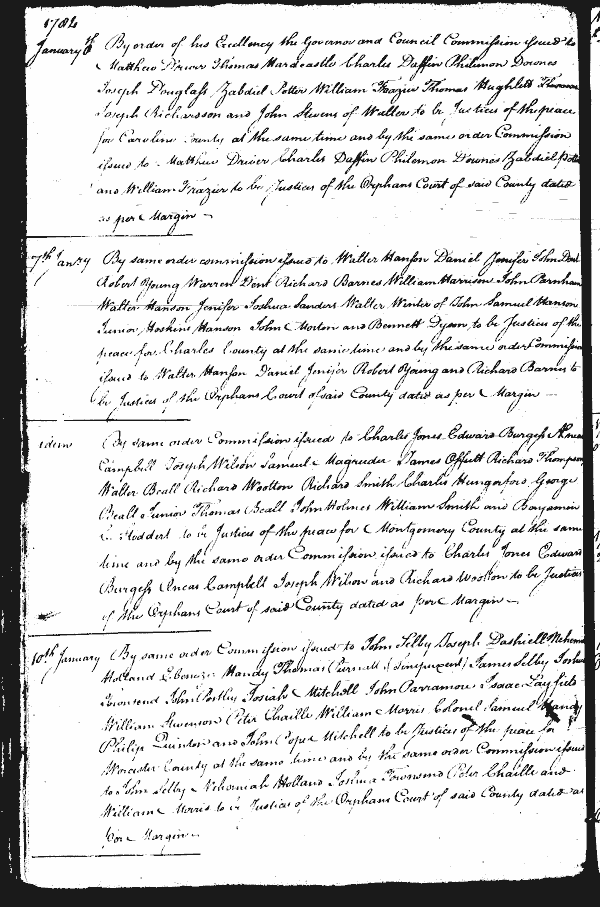 1782
January 6th By order of his Excellency the Governor and Council Commission issued to
Matthew Driver Thomas Hardcastle Charles Daffin Philemon Downes
Joseph Douglass Zabdiel Potter William Frazier Thomas Hughlett Thomas
Joseph Richardson and John Stevens of Walter to be Justices of the peace
for Caroline County at the same time and by the same order Commission
issued to Matthew Driver Charles Daffin Philemon Downes Zabdiel Potter
and William Frazier to be Justices of the Orphans Court of said County dated
as per Margin
7th Janry By same order commission issued to Walter Hanson Daniel Jenifer John Dent
Robert Young Warren Dent Richard Barnes William Harrison John Parnham
Walter Hanson Jenifer Joshua Sanders Walter Winter of John Samuel Hanson
Junior Hoskins Hanson John Morton and Bennett Dyson to be Justices of the
peace for Charles County at the same time and by the same order Commission
issued to Walter Hanson Daniel Jenifer Robert Young and Richard Barnes to
be Justices of the Orphans Court of said County dated as per Margin
idem By same order Commission issued to Charles Jones Edward Burgess Aneas
Campbell Joseph Wilson Samuel Magruder James Offutt Richard Thompson
Walter Beall Richard Wootton Richard Smith Charles Hungerford George
Beall Junior Thomas Beall John Holmes William Smith and
Stoddert to be Justices of the peace for Montgomery County at the same
time and by the same order Commission issued to Charles Jones Edward
Burgess Aneas Campbell Joseph Wilson and Richard Wootton to be Justices
of the Orphans Court of said County dated as per Margin
10th January By same order Commission issued to John Selby Joseph Dashiell Nehemiah
Holland Ebenezer Handy Thomas Purnell (Sinepuxent) James Selby Joshua
Townsend John Postley Josiah Mitchell John Parramore Isaac Layfield
William Stevenson Peter Chaille William Morris Colonel Samuel Handy
Philip Quinton and John Pope Mitchell to be Justices of the peace for
Worcester County at the same time and by the same order Commission issued
to John Selby Nehemiah Holland Joshua Townsend Peter Chaille and
William Morris to be Justices of the Orphans Court of said County dated as
per Margin